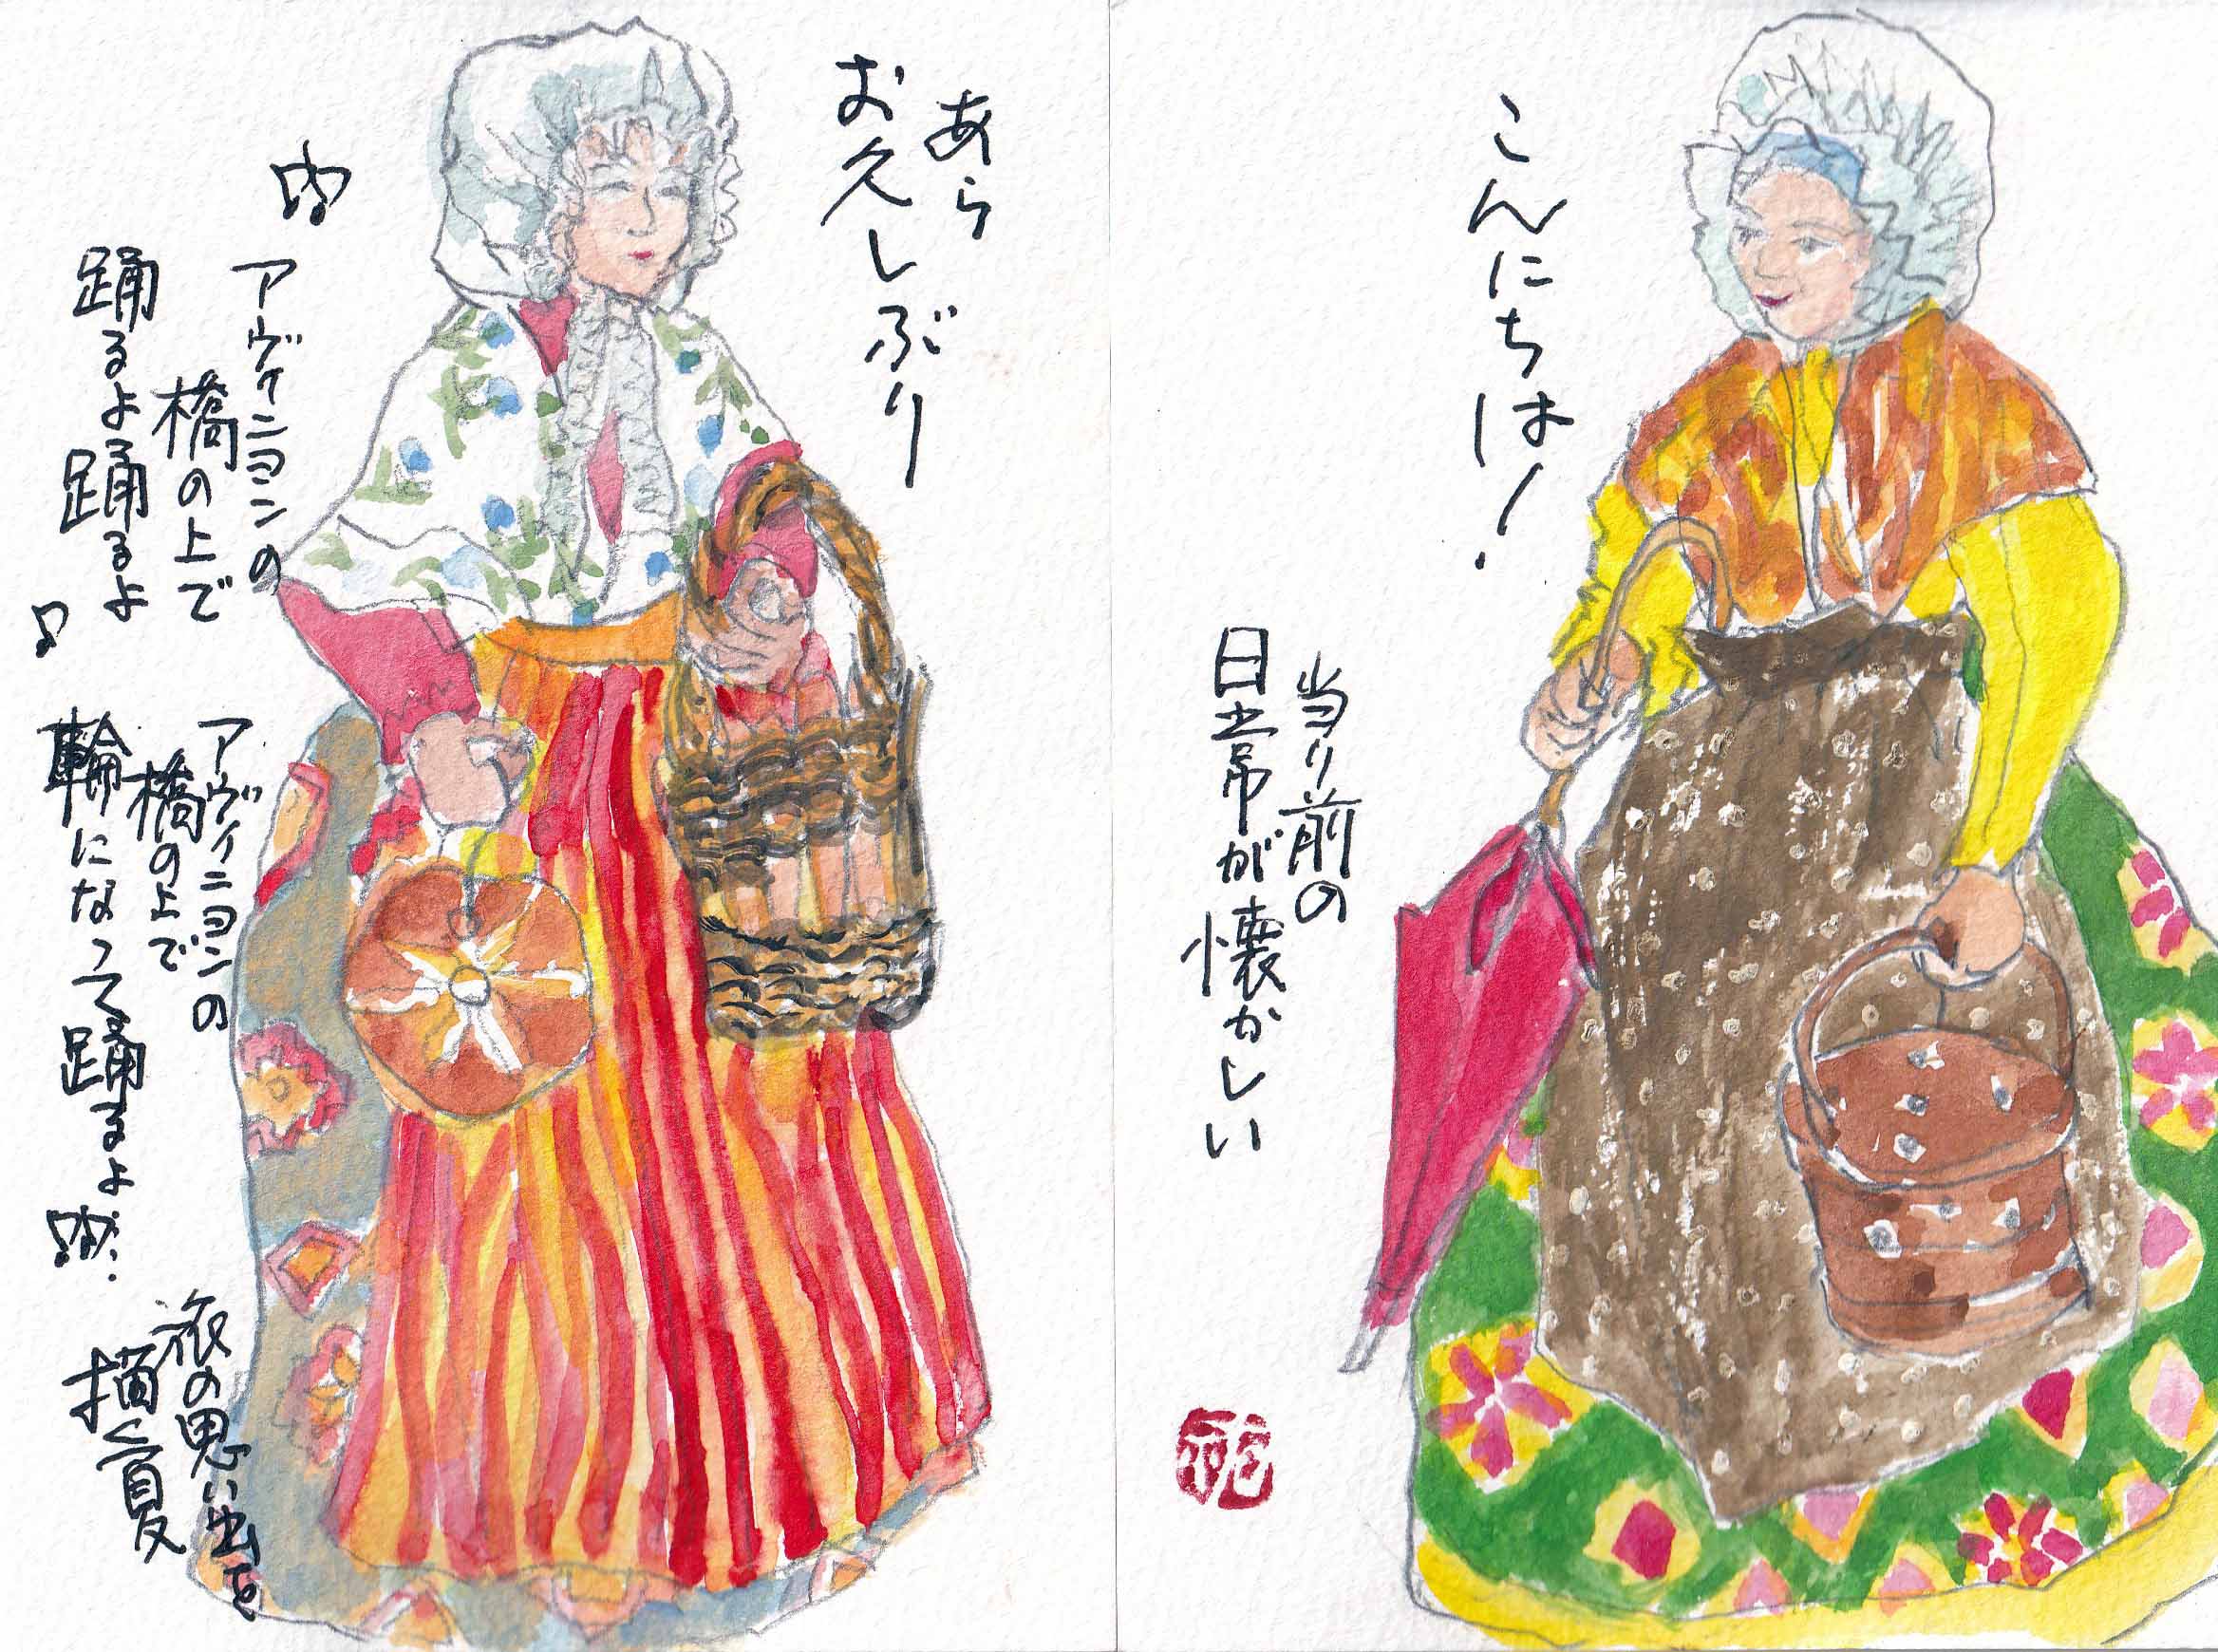 こんにちは!
当り前の
日常が懐かしい
あら
お久しぶり
アヴィニヨンの
橋の上で
踊るよ踊るよ
アヴィニヨンの
橋の上で
輪になって踊るよ
旅の思い出を
描く夏